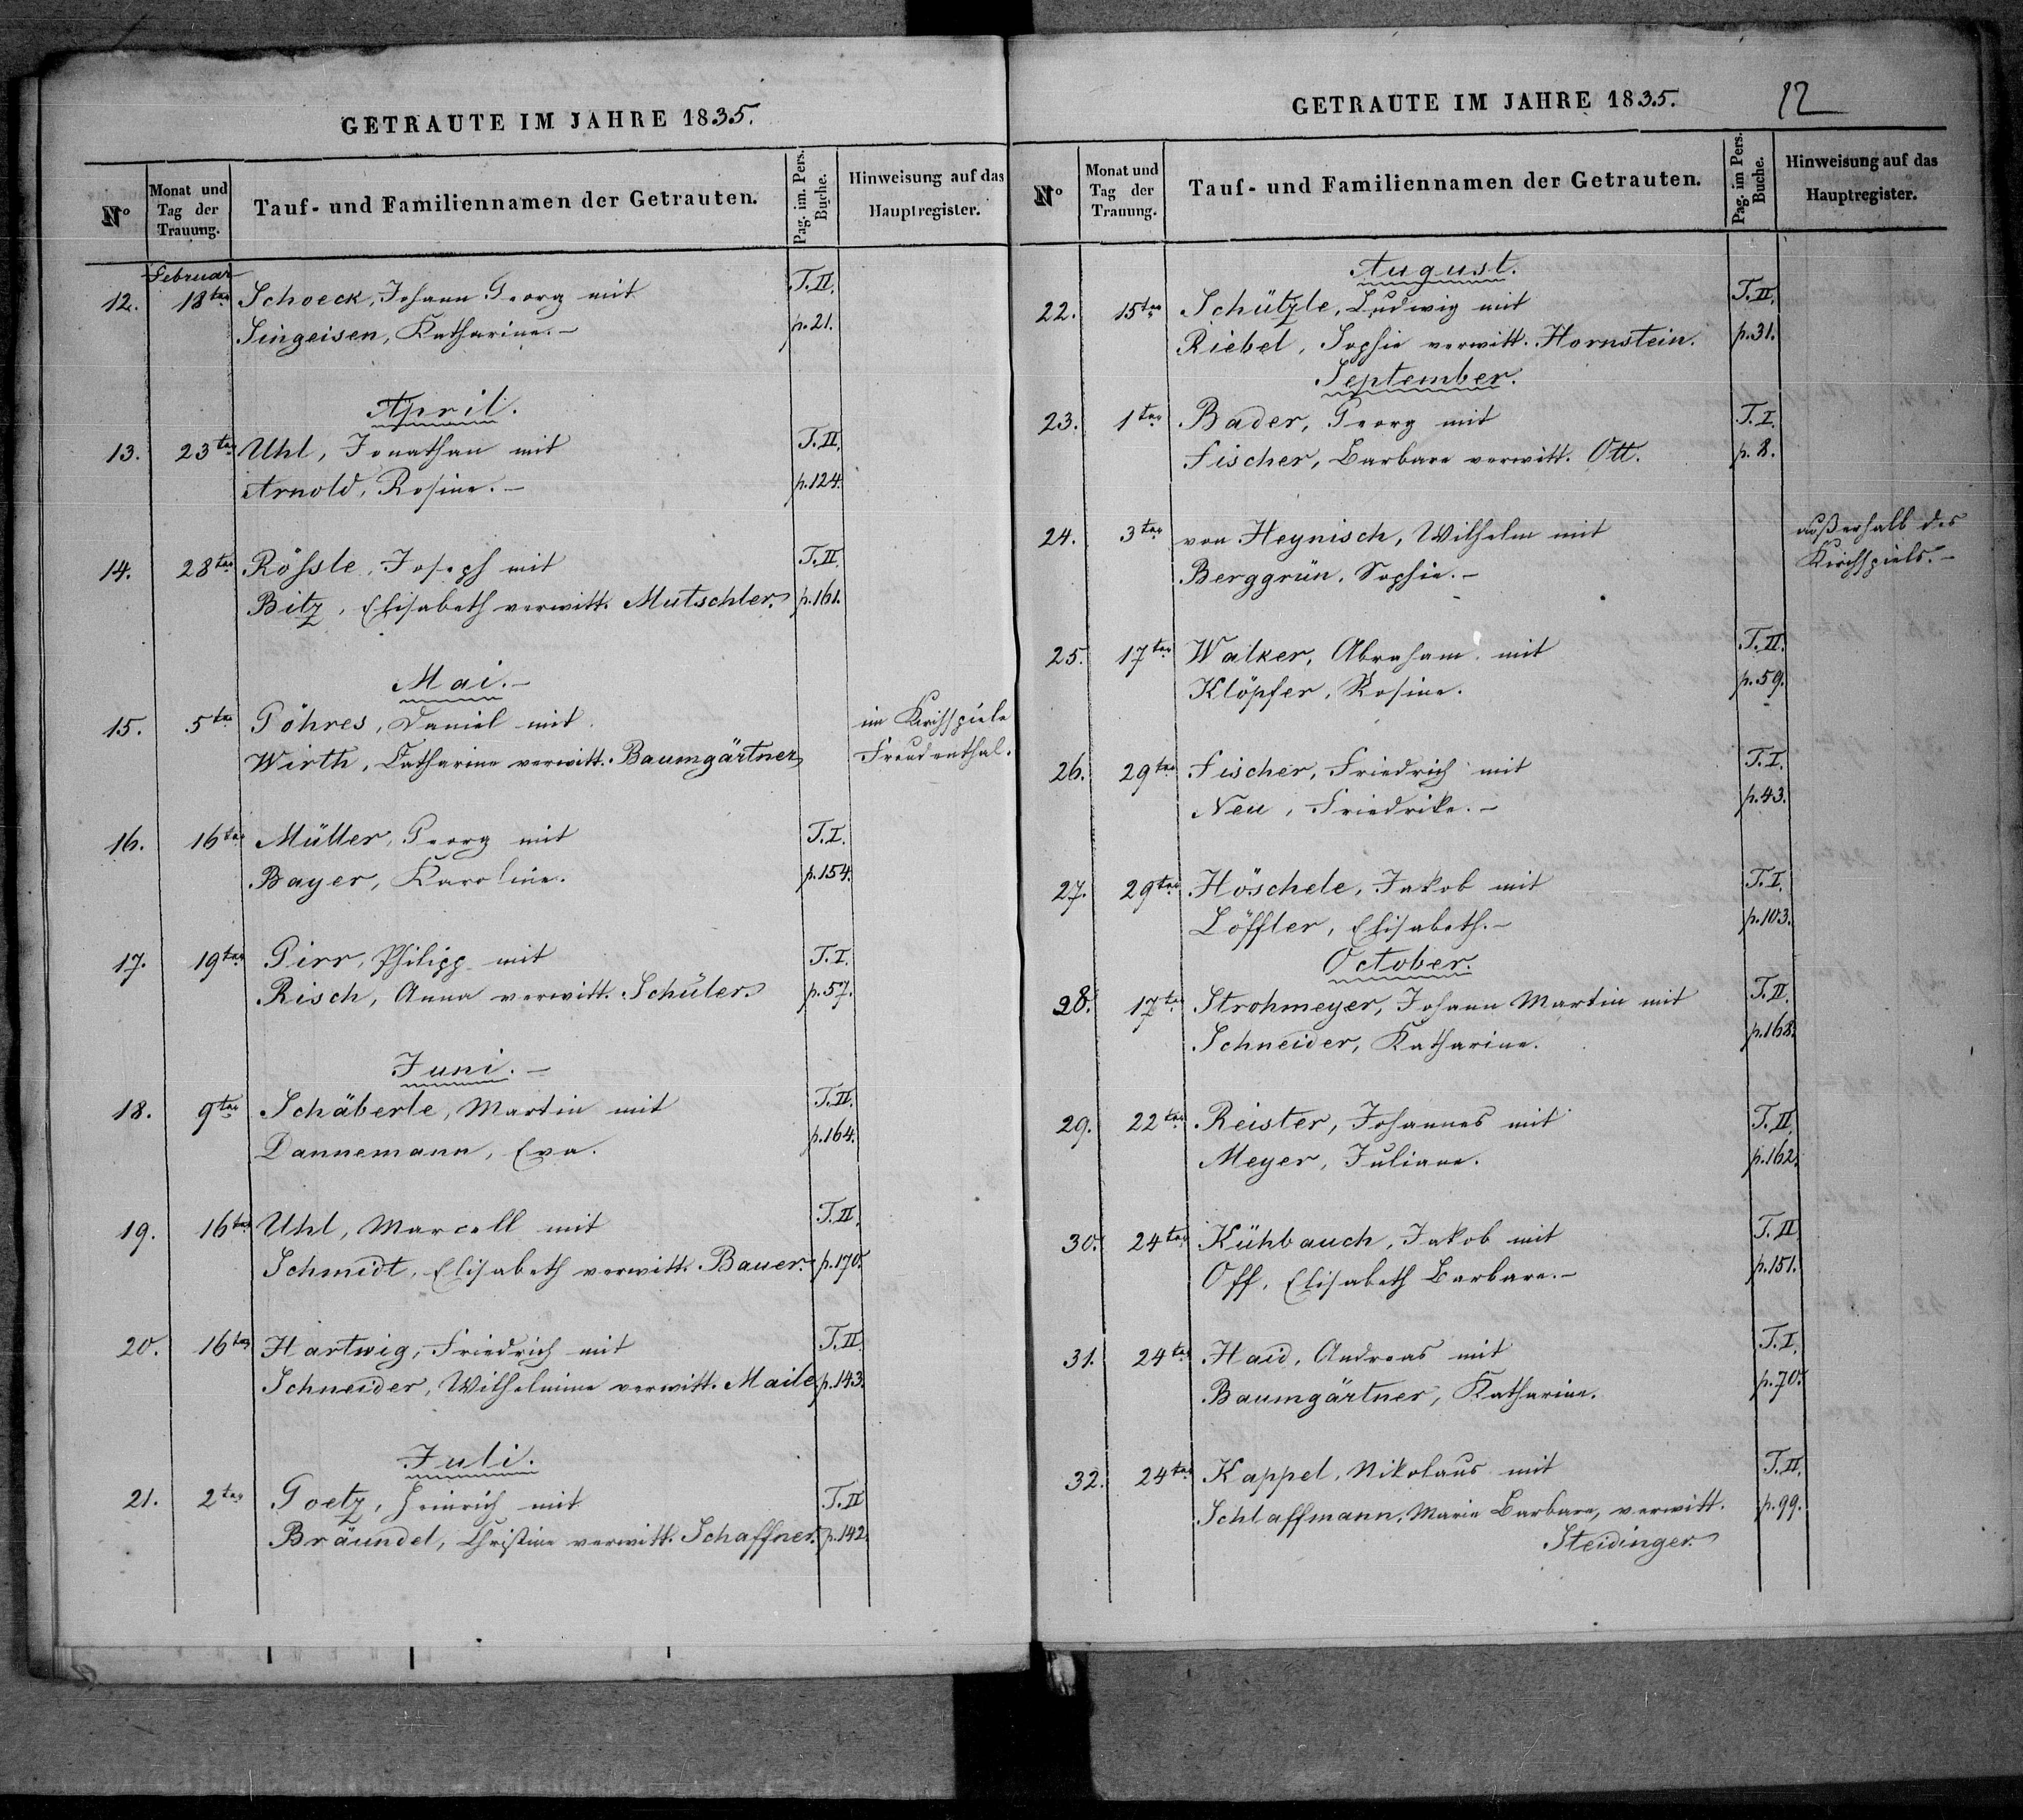 GETRAUTE IM JAHRE 1835.
No Monat und Tag der Trauung. Tauf- und Familiennamen der Getrauten. Pag. im. Pers. Buche. Hinweisung auf das Hauptregister.
Februar
12. 18ten Schoeck, Johann Georg mit T.II.
Singeisen, Katharine.– p.21.
April.
13. 23ten Uhl, Jonathan mit T.II.
Arnold, Rosine.– p.124.
14. 28ten Rößle, Joseph mit T.II.
Bitz, Elisabeth verwitt. Mutschler. p.161.
Mai.–
15. 5ten Göhres, Daniel mit im Kirchspiele
Wirth, Catharine verwitt. Baumgärtner Freudenthal.
16. 16ten Müller, Georg mit T.I.
Bayer, Karoline. p.154.
17. 19ten Girr, Philipp mit T.I.
Risch, Anna verwitt. Schüler. p.57.
Juni.–
18. 9ten Schäberle, Martin mit T.II.
Dannemann, Eva. p.164.
19. 16ten Uhl, Marcell mit T.II.
Schmidt, Elisabeth verwitt. Bauer. p.170.
20. 16ten Hartwig, Friedrich mit T.II.
Schneider, Wilhelmine verwitt. Maile p.143.
Juli.
21. 2ten Goetz, Heinrich mit T.II
Bräundel, Christine verwitt. Schaffner. p.142.
GETRAUTE IM JAHRE 1835. 12
No Monat und Tag der Trauung. Tauf- und Familiennamen der Getrauten. Pag. im Pers. Buche. Hinweisung auf das Hauptregister.
August.
22. 15ten Schützle, Ludwig mit T.II.
Riebel, Sophie verwitt. Hornstein. p.31.
September.
23. 1ten Bader, Georg mit T.I.
Fischer, Barbara verwitt. Ott. p.8.
24. 3ten von Heynisch, Wilhelm mit außerhalb des
Berggrün, Sophie.– Kirchspiels.–
25. 17ten Walker, Abraham mit T.II.
Klöpfer, Rosine. p.59.
26. 29ten Fischer, Friedrich mit T.I.
Neu, Friedrike.– p.43.
27. 29ten Höschele, Jakob mit T.I.
Löffler, Elisabeth.– p.103.
October.
28. 17ten Strohmeyer, Johann Martin mit T.II.
Schneider, Katharine. p.168.
29. 22ten Reister, Johannes mit T.II.
Meyer, Juliane. p.162.
30. 24ten Kühbauch, Jakob mit T.II
Off, Elisabeth Barbara.– p.151.
31. 24ten Haid, Andreas mit T.I.
Baumgärtner, Katharine. p.70.
32. 24ten Kappel, Nikolaus mit T.II.
Schlaffmann, Marie Barbara, verwitt. p.99.
Steidinger.